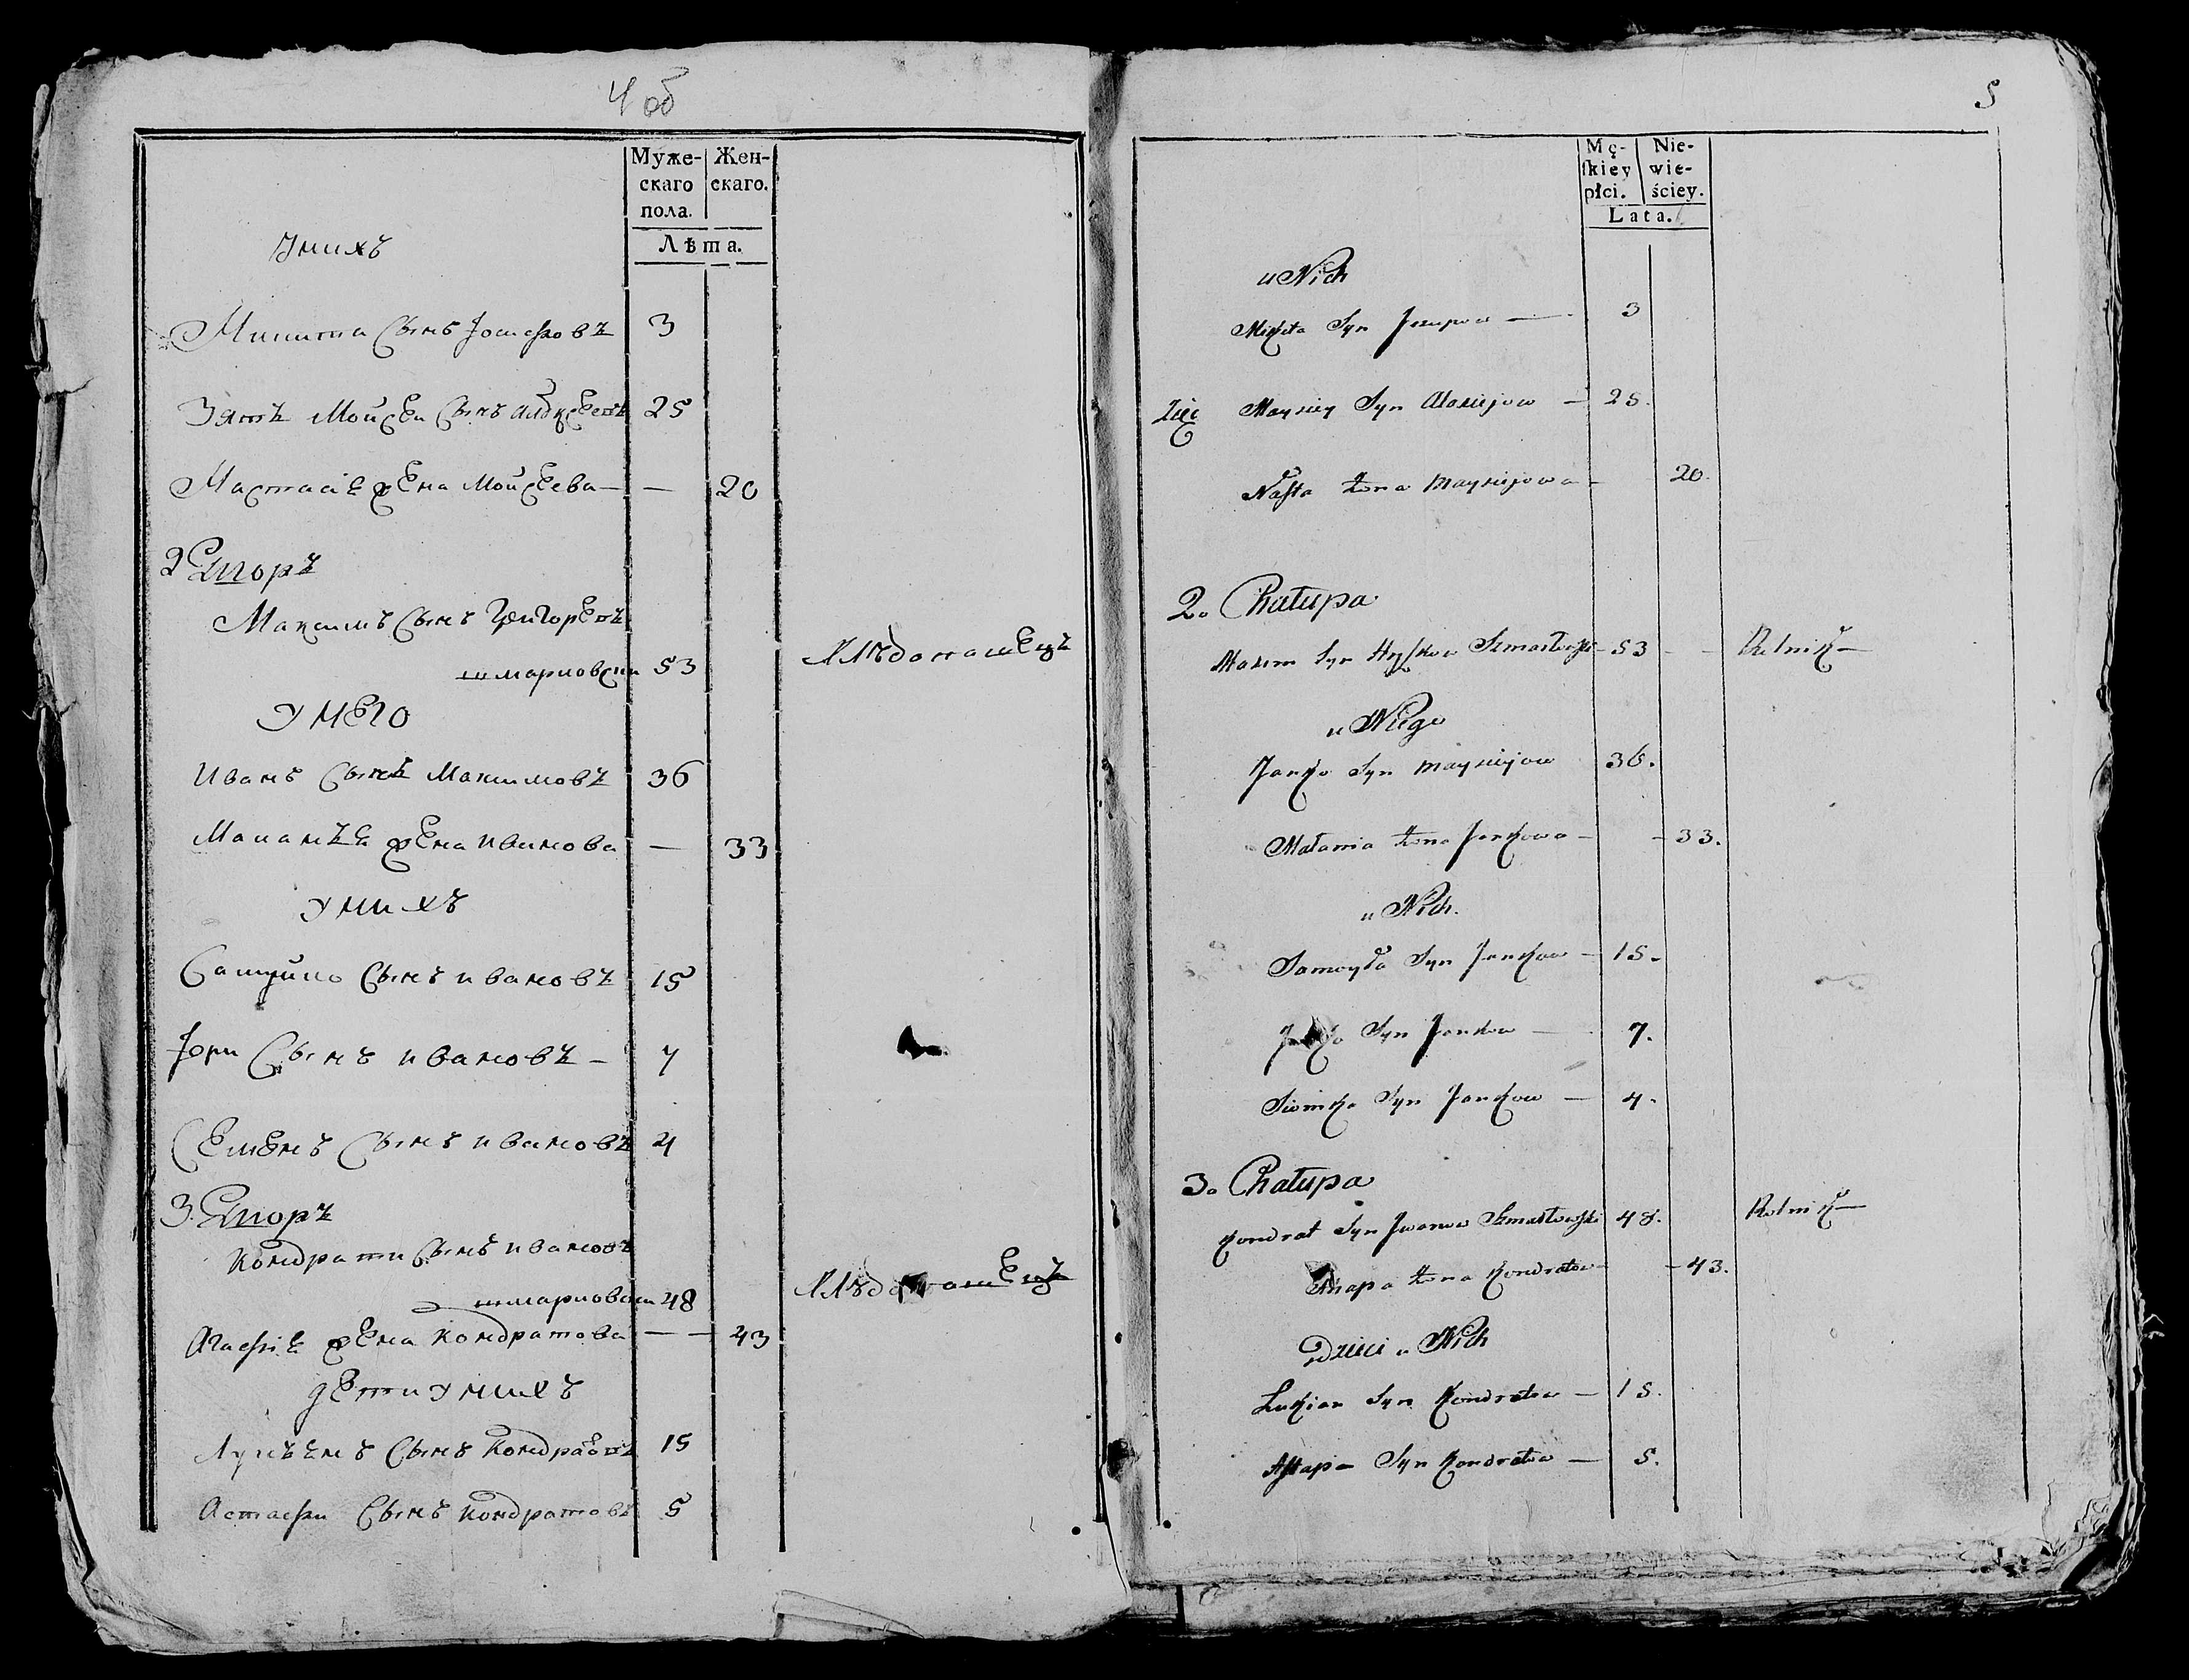 4 об
Муже-
скаго
пола.
Жен-
скаго.
Лѣта.
У нихъ
Микита Сынъ Іосифовъ 3
Зять Мойсеи Сынъ Алексеевъ 25
Настасіе жена Мойсеева — — 20
2 Дворъ
Максимъ Сынъ Григорьевъ
шмарловски 53 Хлѣбопашецъ
У него
Иванъ Сынъ Максимовъ 36
Маланья жена Иванова — 33
У нихъ
Самуйло Сынъ Ивановъ 15
Іори Сынъ Ивановъ — 7
Семенъ Сынъ Ивановъ 4
3. Дворъ
Кондрати Сынъ Ивановъ
шмарловски 48 Хлѣбопашецъ
Агафіе жена Кондратова — — 43
Дети у нихъ
Лукьянъ Сынъ Кондратовъ 15
Астафи Сынъ Кондратовъ 5
5
Mę-
ſkiey
płci.
Nie-
wie-
ściey.
Lata.
u Nich
Mikita Syn — 3
Zięć Maysiey Syn Alaxiejow — 25.
Nasta żona Maysiejowa — 20.
2. Chałupa
Maxim Syn Hryſkow — 53 — — Rolnik —
u Niego
Janko Syn Maysiejow 36.
Małania żona Jankowa — — 33.
u Nich.
Samoyła Syn Jankow — 15.
Syn Jankow — 7.
Siomka Syn Jankow — 4.
3. Chałupa
Kondrat Syn Iwanow 48. Rolnik —
Ahapa żona Kondratow — — 43.
Dzieci u Nich
Łukian Syn Kondratow — 15.
Aſtapa Syn Kondratow — 5.